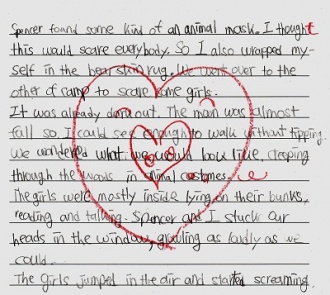 Spencer found some kind of an animal mask. I thought
this would scare everybody. So I also wrapped my-
self in the bear skin rug. We went over to the
other of camp to scare some girls.
It was already dark out. The moon was almost
full so I could see enough to walk without tipping.
We wondered what we would look like, creeping
through the woods in animal costumes.
The girls were mostly inside lying on their bunks,
reading and talking. Spencer and I stuck our
heads in the window, growling as loudly as we
could.
The girls jumped in the air and started screaming.